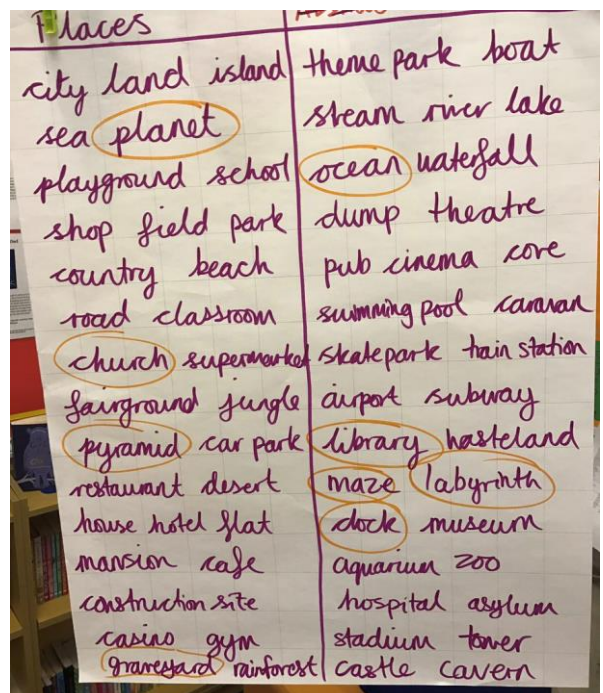 Places
city land island
sea planet
playground school
shop field park
country beach
road classroom
church supermarket
fairground jungle
pyramid car park
restaurant desert
house hotel flat
mansion cafe
construction site
casino gym
graveyard rainforest
theme park boat
steam river lake
ocean waterfall
dump theatre
pub cinema cove
swimming pool caravan
skatepark train station
airport subway
library wasteland
maze labyrinth
dock museum
aquarium zoo
hospital asylum
stadium tower
castle cavern